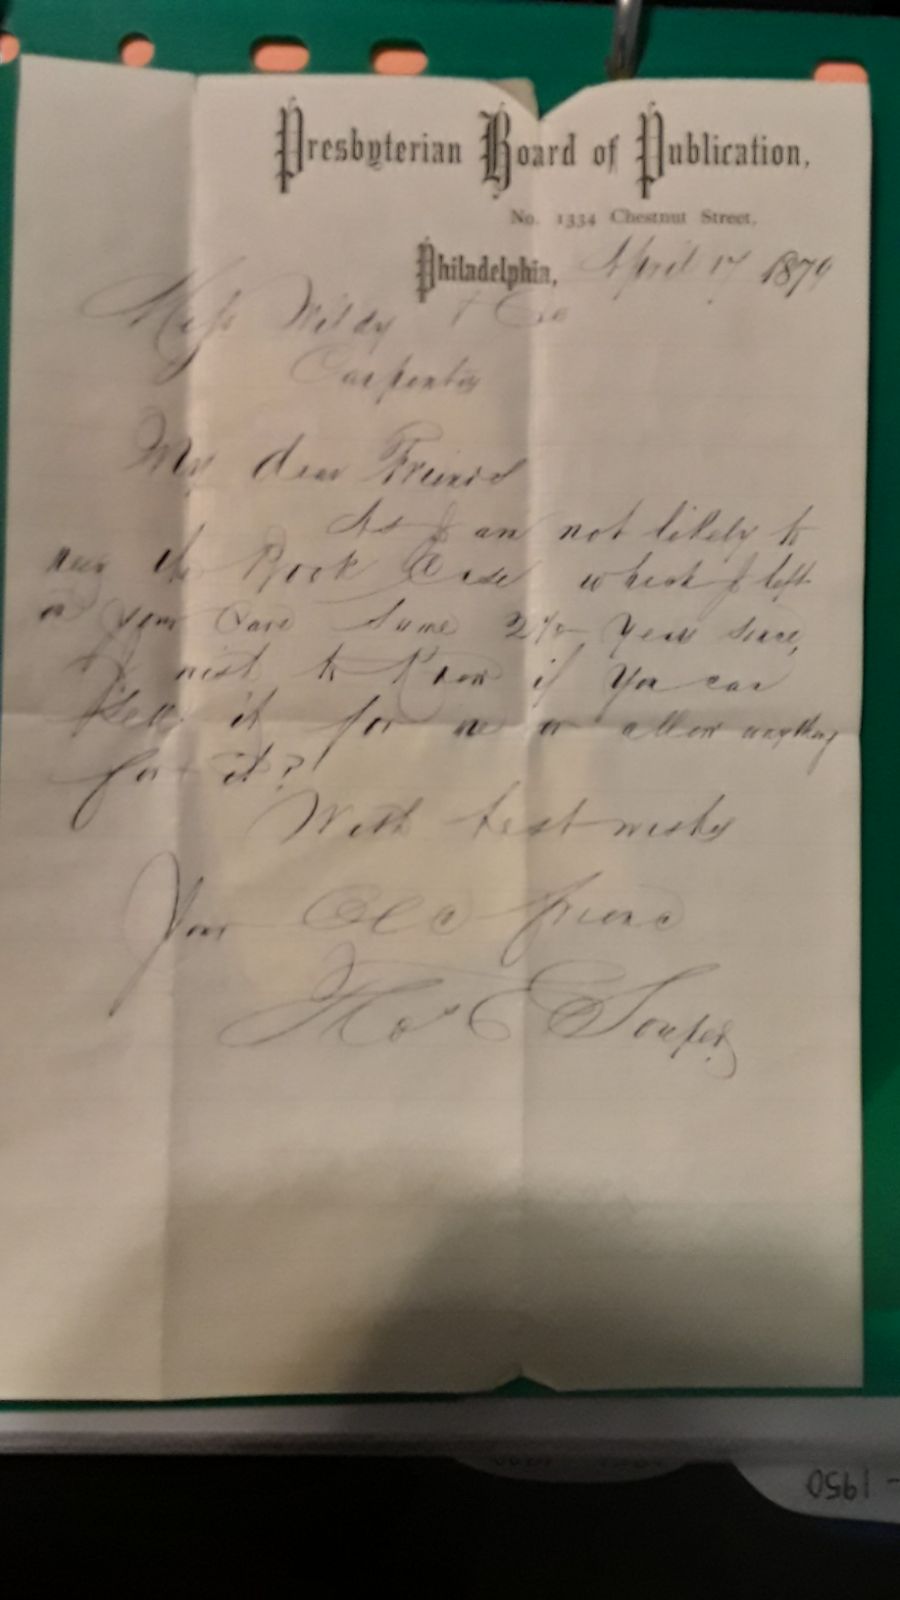 Presbyterian Board of Publication,
No. 1334 Chestnut Street.
Philadelphia, April 17 1879
Mess Wildy & Co
Carpenters
My dear Friend
As I am not likely to
need the Book Case which I left
in your Care some 2½ years since,
I wish to know if you can
sell it for me or allow anything
for it?
With best wishes
Your Old friend
Thos E Souper
- 1950